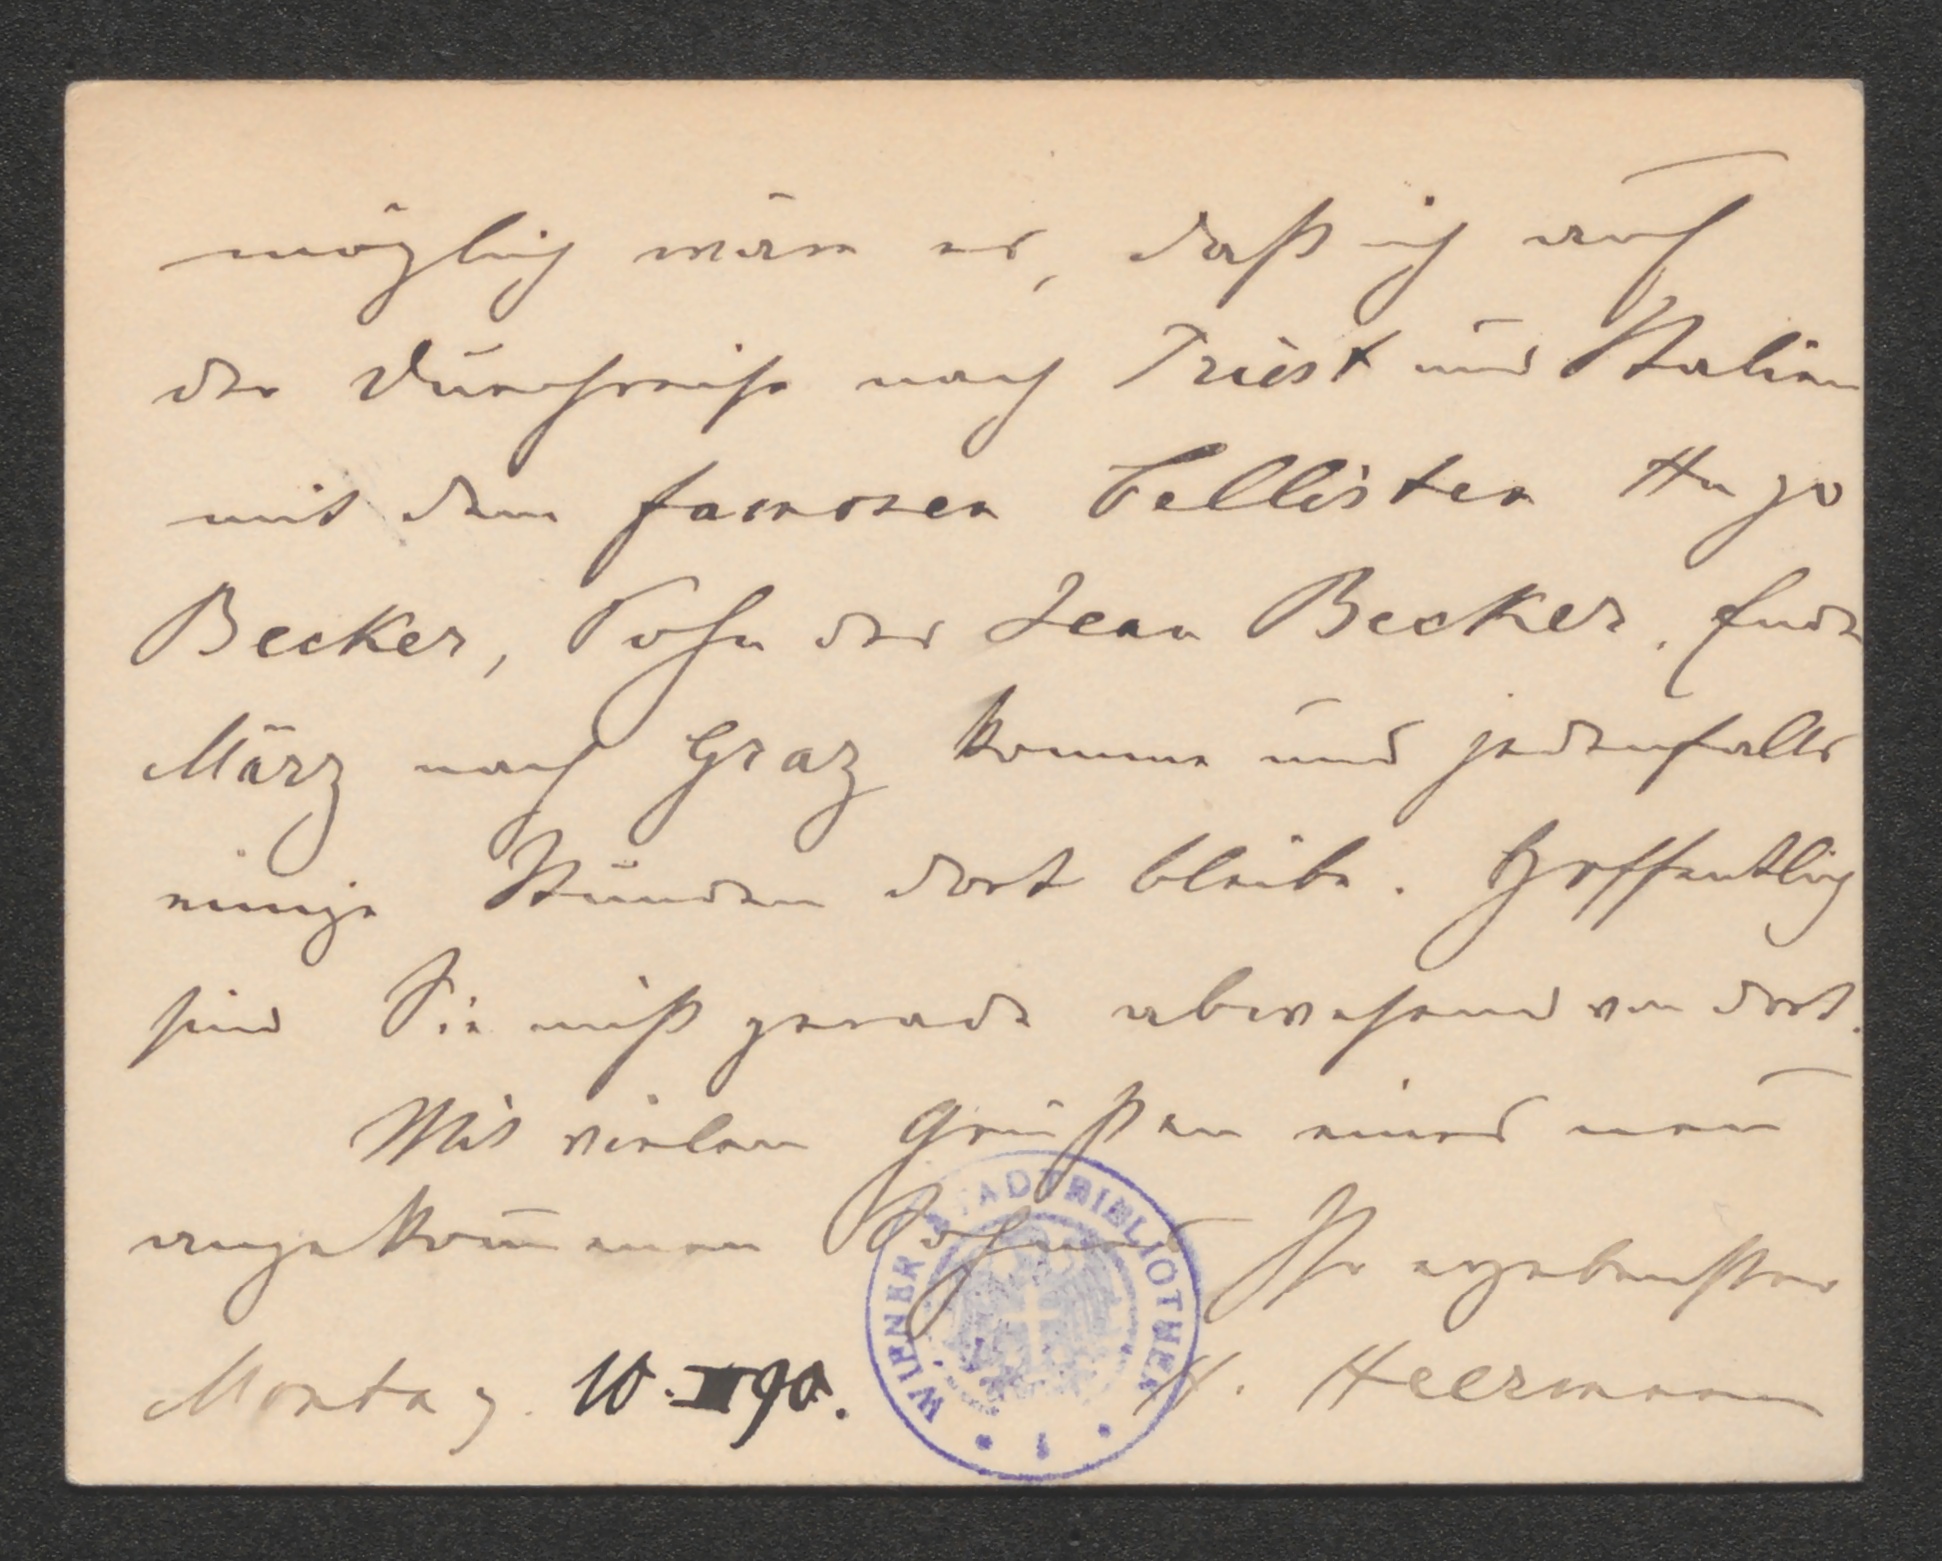 möglich wäre es, daß ich auf
der Durchreise nach Triest und Italien
mit dem famosen Cellisten Hugo
Becker, Sohn des Jean Becker, Ende
März nach Graz komme und jedenfalls
einige Stunden dort bleibe. Hoffentlich
sind Sie nicht gerade abwesend von dort.
Mit vielen Grüßen eines neu
angekom̅menen Sohnes Ihr ergebenster
Montag. 10. 90. H. Heermann
WIENER STADTBIBLIOTHEK